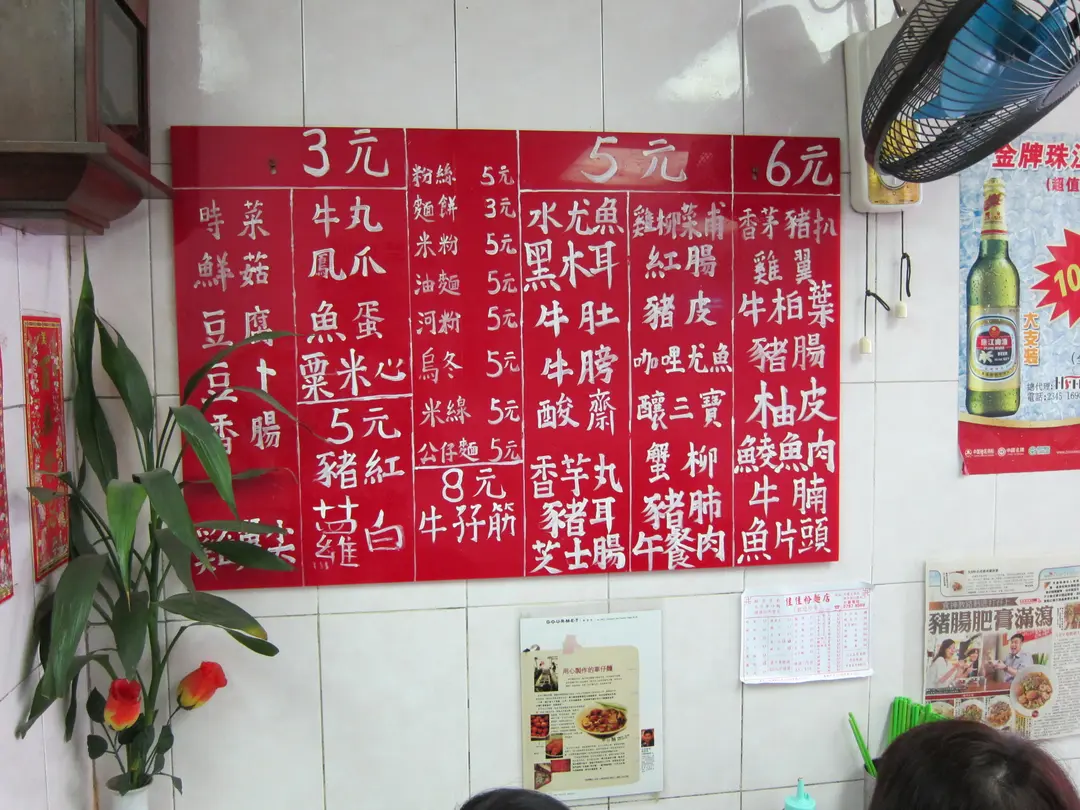 3元
時菜
鮮菇
豆腐
豆卜
香腸
牛丸
鳳爪
魚蛋
粟米心
5元
豬紅
蘿白
粉絲 5元
麵餅 3元
米粉 5元
油麵 5元
河粉 5元
烏冬 5元
米線 5元
公仔麵 5元
8元
牛孖筋
5元
水尤魚
黑木耳
牛肚
牛膀
酸齋
香芋丸
豬耳
芝士腸
雞柳菜甫
紅腸
豬皮
咖哩尤魚
釀三寶
蟹柳
豬肺
午餐肉
6元
香茅豬扒
雞翼
牛柏葉
豬腸
柚皮
鯪魚肉
牛腩
魚片頭
金牌珠江
(超值
10
大支裝
珠江啤酒
總代理:
電話:2345
GOURMET
用心製作的車仔麵
佳佳粉麵店
豬腸肥膏滿瀉